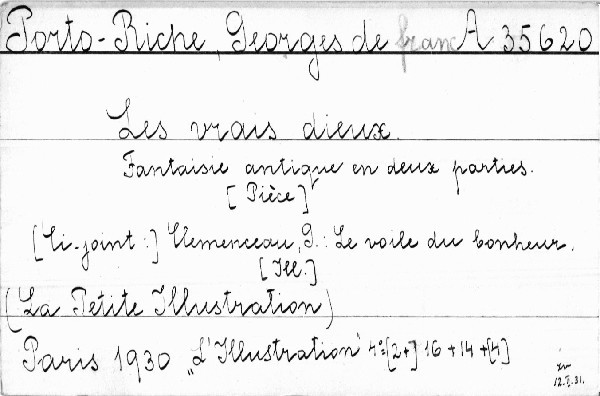 Porto-Riche, Georges de franc A 35620
Les vrais dieux.
Fantaisie antique en deux parties.
[Pièce]
[Ci-joint:] Clemenceau, G.: Le voile du bonheur.
[Ill.]
(La Petite Illustration)
Paris 1930 „L'Illustration" 4º [2+] 16 + 14 + [4]
12.I.31.